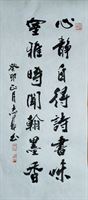 心靜自得詩書味
室雅時聞翰墨香
癸卯正月